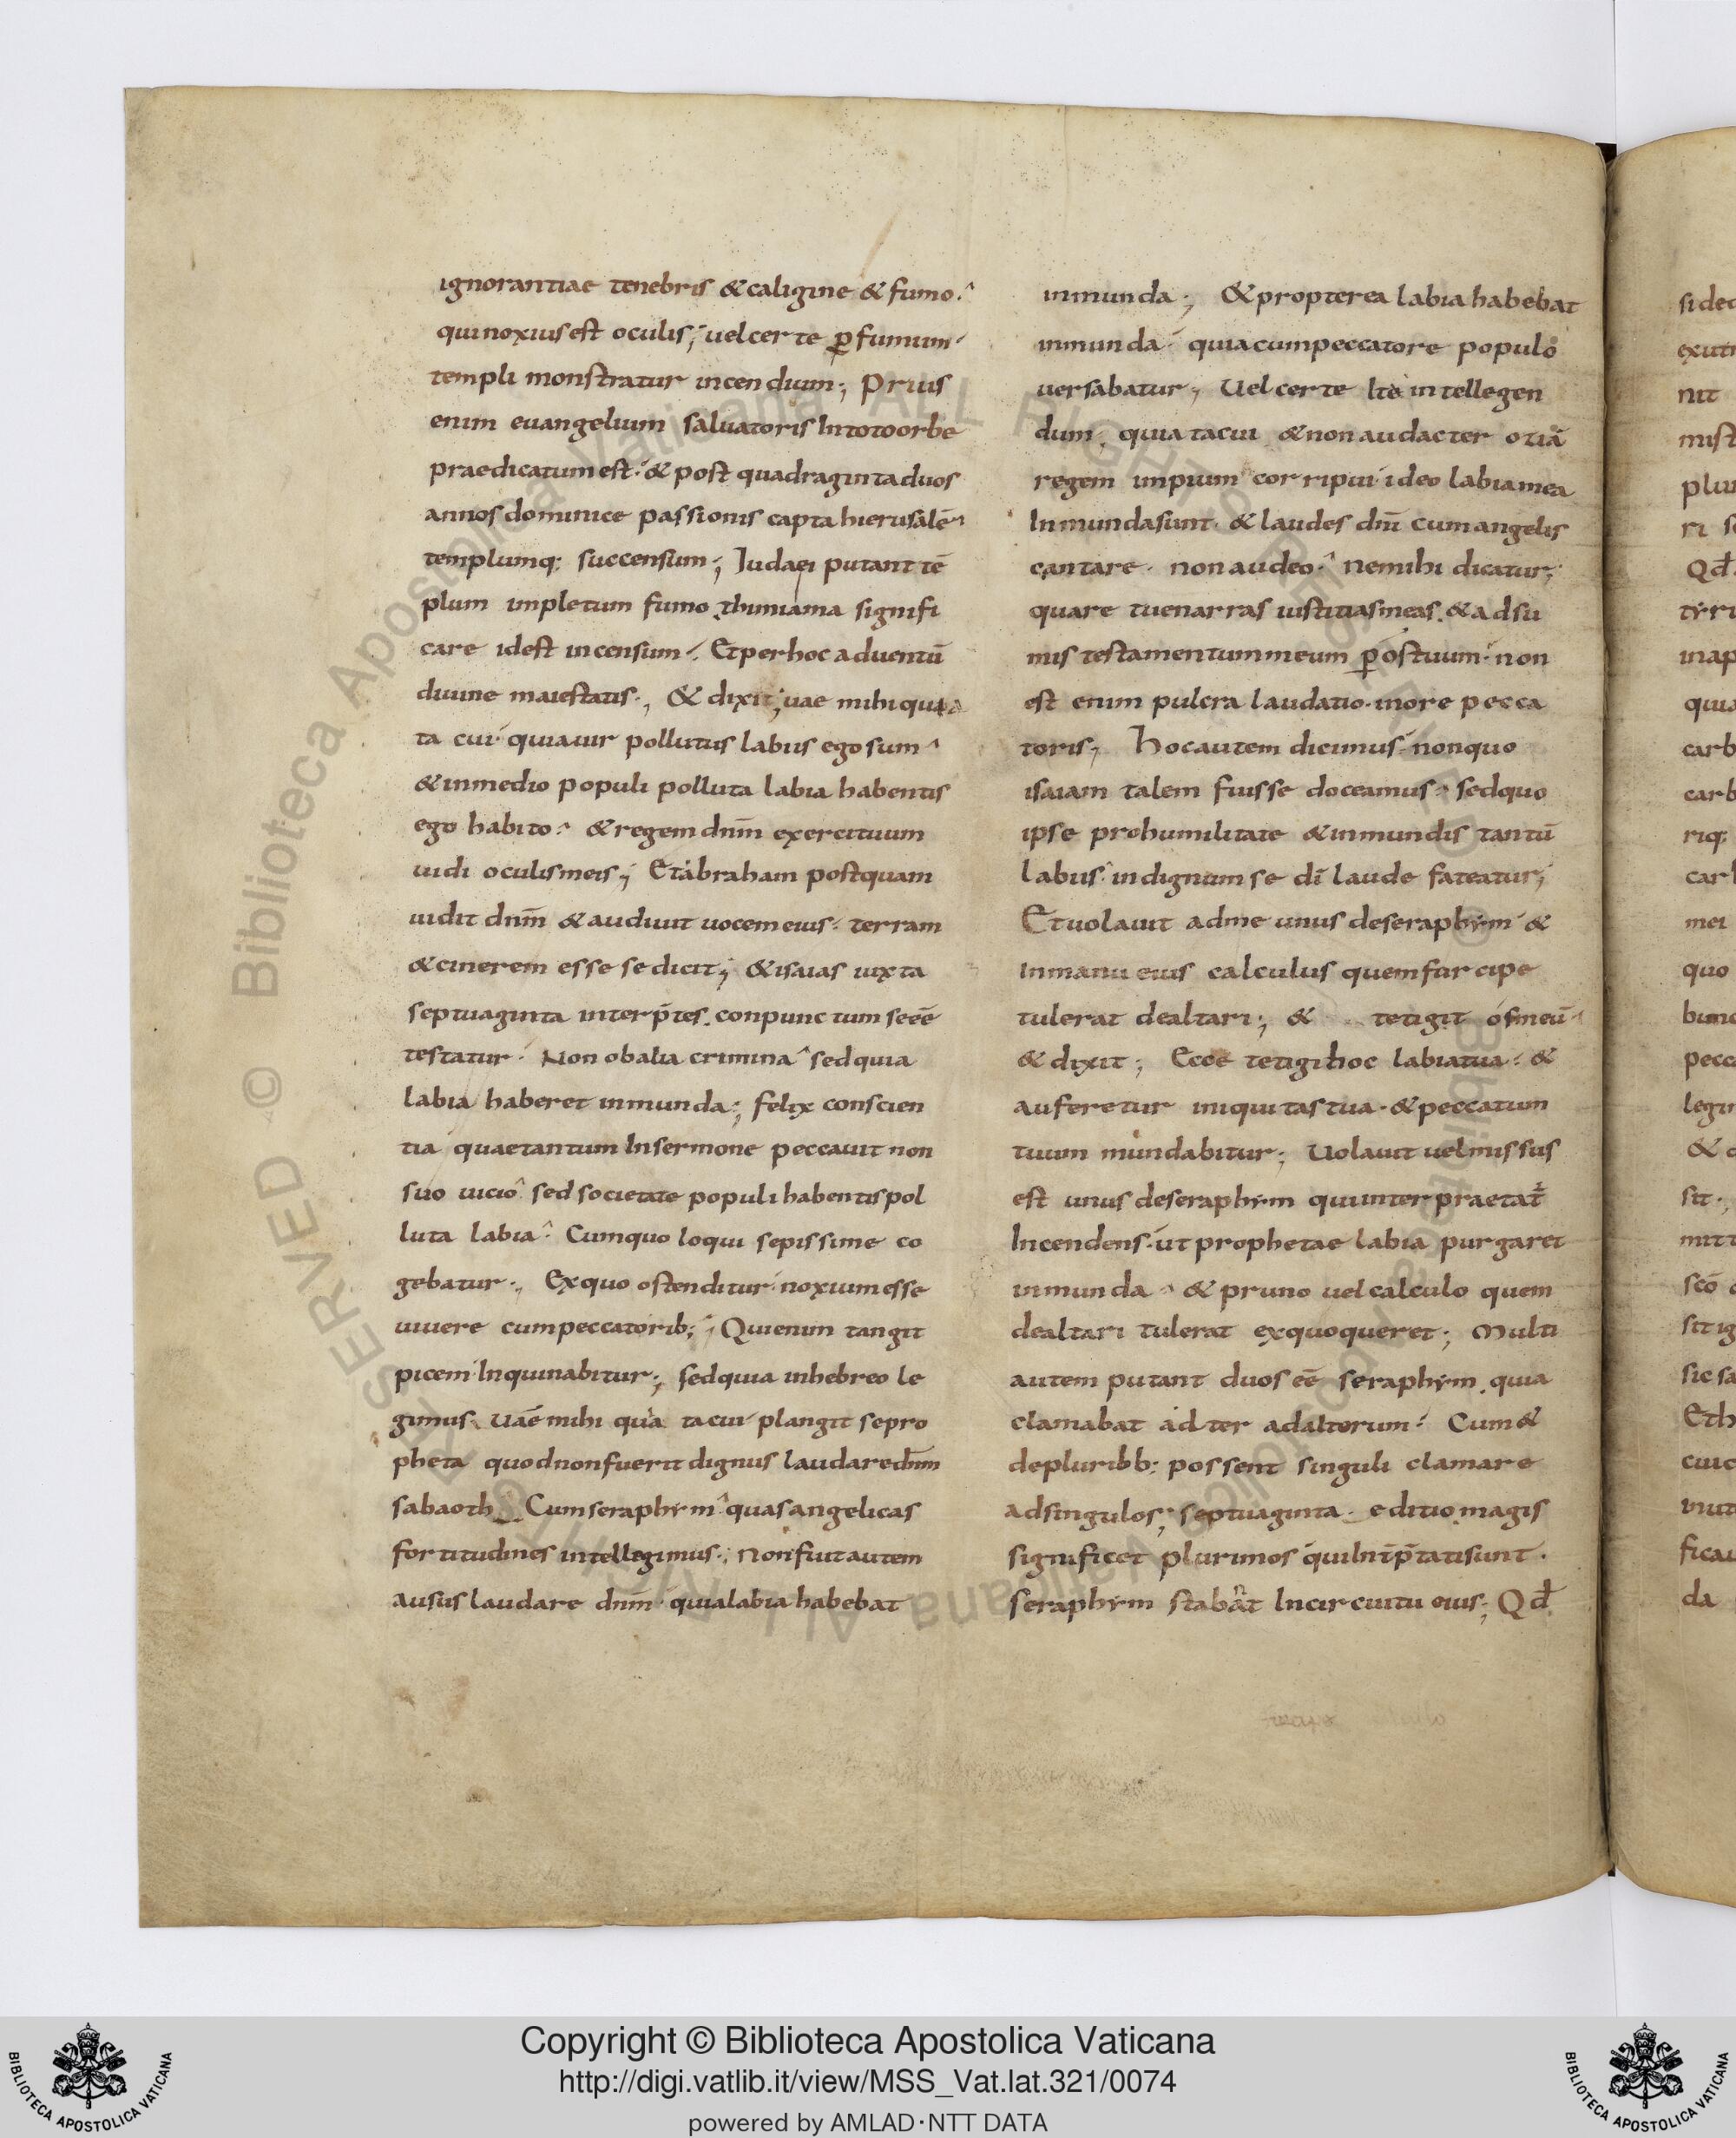 ignorantiae tenebris & caligine & fumo.
qui noxius est oculis; uel certe p̱ fumum
templi monstratur incendium; Prius
enim euangelium saluatoris In toto orbe
praedicatum est. & post quadraginta duos
annos dominice passionis capta hierusalē
templumq: succensum; Iudaei putant tē
plum impletum fumo thimiama signifi
care idest incensum. Et per hoc aduentū
diuine maiestatis; & dixit; uae mihi quia
tacui quia uir pollutus labiis ego sum
& in medio populi polluta labia habentis
ego habito. & regem dnm̄ exercituum
uidi oculis meis; Et abraham postquam
uidit dnm̄ & audiuit uocem eius. terram
& cinerem esse se dicit; & isaias iuxta
septuaginta interp̄tes. conpunctum se eē
testatur. Non ob alia crimina sed quia
labia haberet inmunda; felix conscien
tia quae tantum In sermone peccauit non
suo uicio sed societate populi habentis pol
luta labia. Cum quo loqui sepissime co
gebatur; Ex quo ostenditur noxium esse
uiuere cum peccatorib; Qui enim tangit
picem Inquinabitur; sed quia in hebreo le
gimus. Uae mihi quia tacui plangit se pro
pheta quod non fuerit dignus laudare dnm̄
sabaoth Cum seraphym quas angelicas
fortitudines intellegimus; Non fuit autem
ausus laudare dnm̄ quia labia habebat
inmunda; & propterea labia habebat
inmunda quia cum peccatore populo
uersabatur; Uel certe Ita intellegen
dum. quia tacui & non audacter oziā
regem impium corripui ideo labia mea
Inmunda sunt. & laudes dnī cum angelis
cantare. non audeo. ne mihi dicatur;
quare tu enarras iustitias meas. & adsu
mis testamentum meum p̱ os tuum. non
est enim pulcra laudatio. in ore pecca
toris; Hoc autem dicimus non quo
isaiam talem fuisse doceamus. sed quo
ipse pro humilitate & inmundis tantū
labiis indignum se dī laude fateatur;
Et uolauit ad me unus de seraphym &
in manu eius calculus quem furcipe
tulerat de altari; & tetigit os meū
& dixit; Ecce tetigit hoc labia tua. &
auferetur iniquitas tua. & peccatum
tuum mundabitur; Uolauit uel missus
est unus de seraphym qui interpraetat̄
Incendens. ut prophetae labia purgaret
inmunda & pruno uel calculo quem
de altari tulerat exquoqueret; Multi
autem putant duos eē seraphym. quia
clamabat alter ad alterum. Cum &
de pluribb: possent singuli clamare
ad singulos; septuaginta. editio magis
significet plurimos qui Int̄p̄tati sunt.
seraphym stabant In circuitu eius; Qd̄